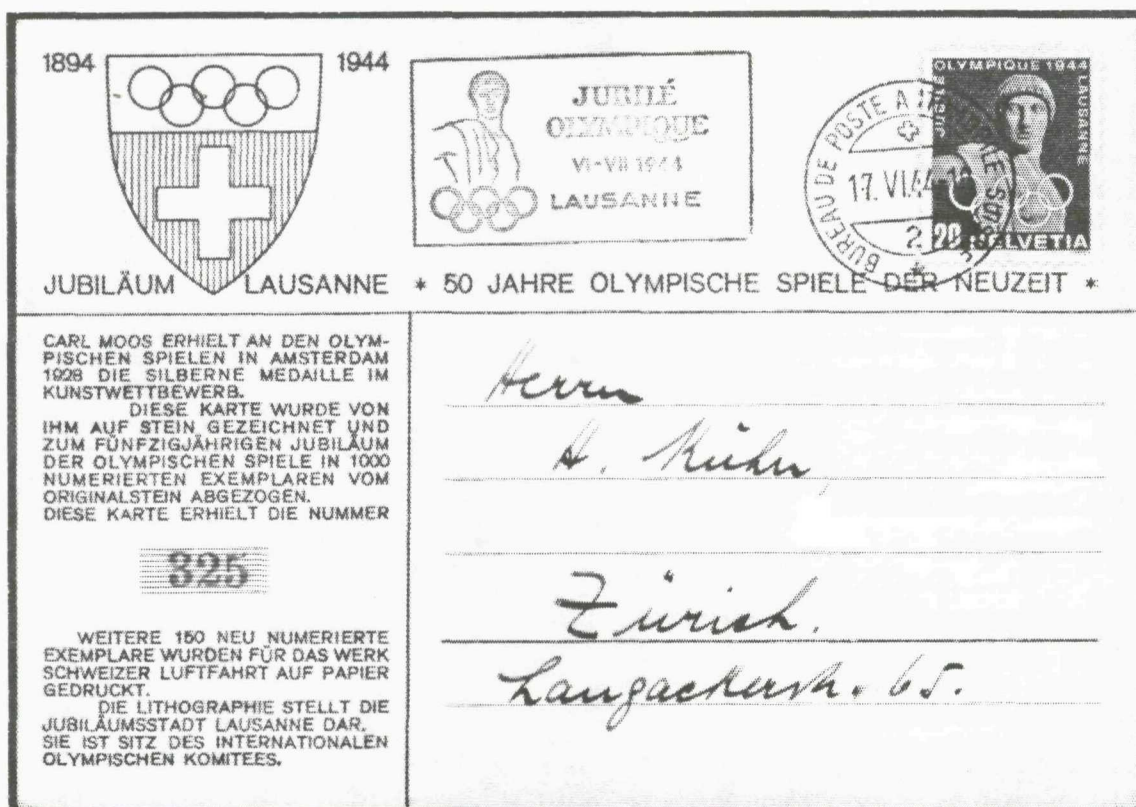 1894 1944
JUBILÉ
OLYMPIQUE
VI-VII 1944
LAUSANNE
JUBILÉ OLYMPIQUE 1944 LAUSANNE
BUREAU DE POSTE A
17. VI. 44
2
20 HELVETIA
JUBILÄUM LAUSANNE * 50 JAHRE OLYMPISCHE SPIELE DER NEUZEIT *
CARL MOOS ERHIELT AN DEN OLYM-
PISCHEN SPIELEN IN AMSTERDAM
1928 DIE SILBERNE MEDAILLE IM
KUNSTWETTBEWERB.
DIESE KARTE WURDE VON
IHM AUF STEIN GEZEICHNET UND
ZUM FÜNFZIGJÄHRIGEN JUBILÄUM
DER OLYMPISCHEN SPIELE IN 1000
NUMERIERTEN EXEMPLAREN VOM
ORIGINALSTEIN ABGEZOGEN.
DIESE KARTE ERHIELT DIE NUMMER
325
WEITERE 150 NEU NUMERIERTE
EXEMPLARE WURDEN FÜR DAS WERK
SCHWEIZER LUFTFAHRT AUF PAPIER
GEDRUCKT.
DIE LITHOGRAPHIE STELLT DIE
JUBILÄUMSSTADT LAUSANNE DAR.
SIE IST SITZ DES INTERNATIONALEN
OLYMPISCHEN KOMITEES.
Herrn
A. Kühn,
Zürich.
Langackerstr. 65.